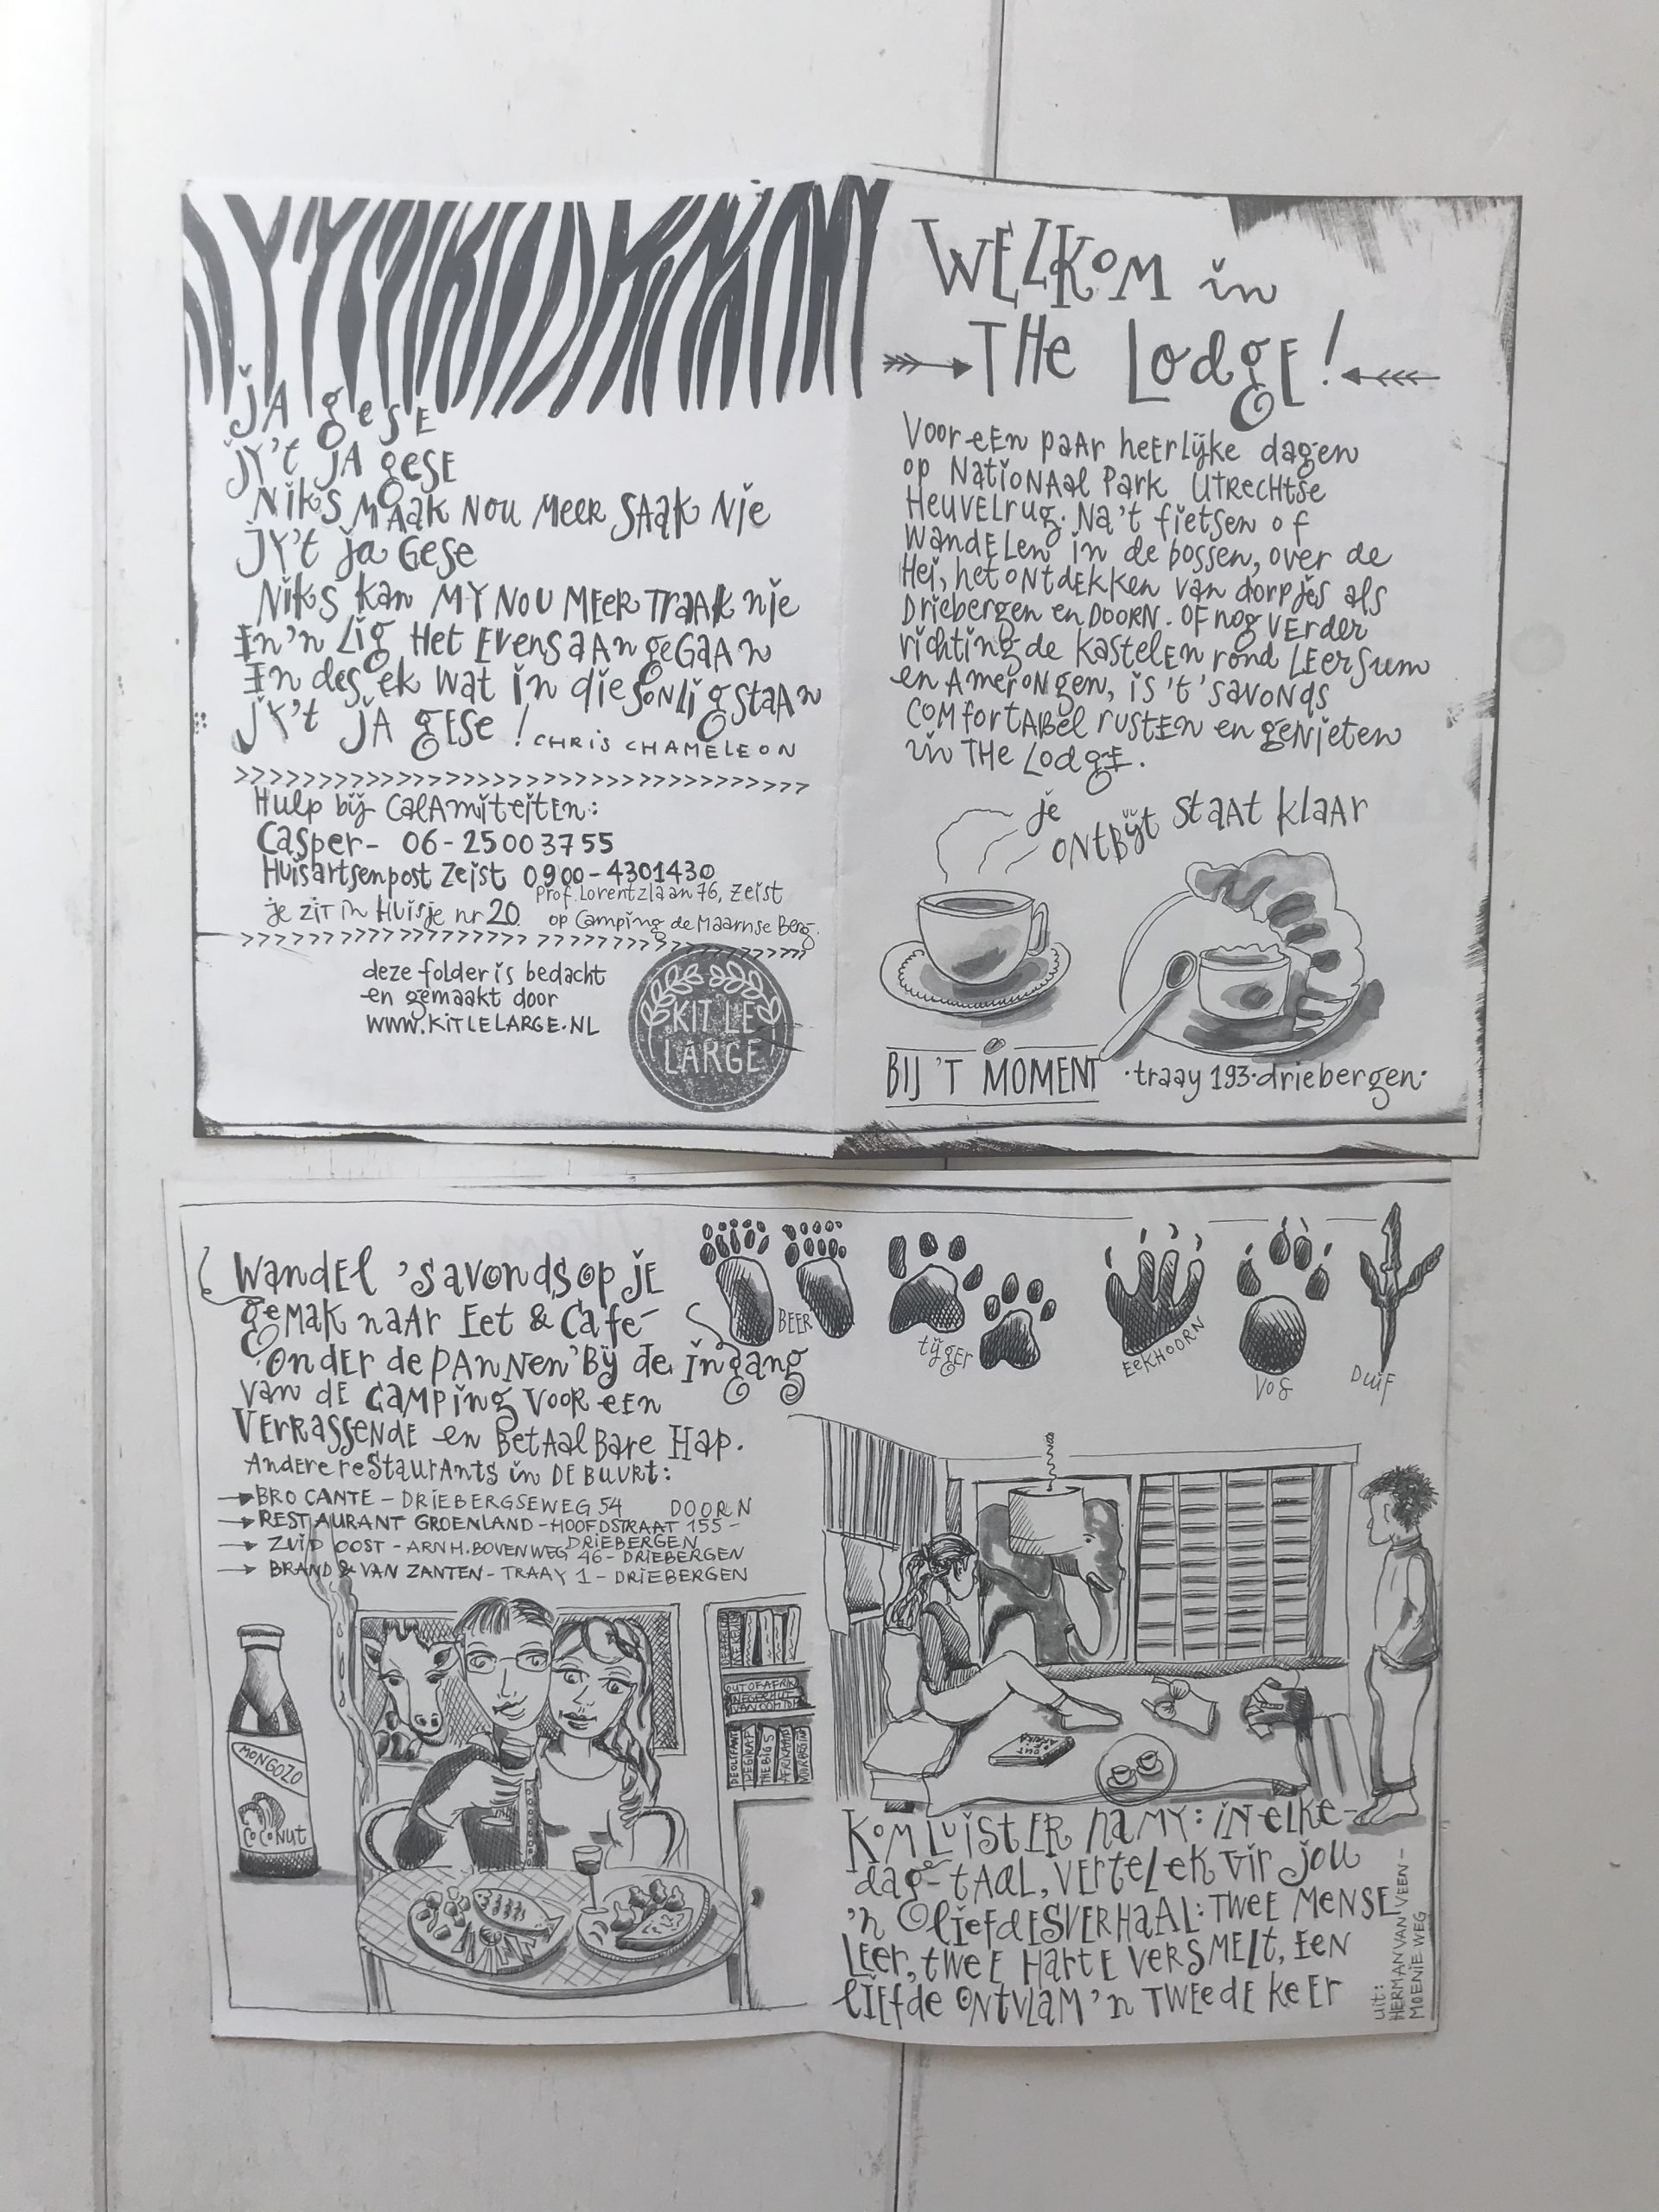 JA gese
JY't JA gese
Niks maak nou meer saak nie
JY't ja gese
Niks kan my nou meer traak nie
En 'n lig het evens aangegaan
En des ek wat in die sonlig staan
JY't JA gese! CHRIS CHAMELEON
>>>>>>>>>>>>>>>>>>>>>>>>>>>>>>>>
Hulp bij calamiteiten:
Casper- 06-25003755
Huisartsenpost Zeist 0900-4301430
Prof. Lorentzlaan 76, Zeist
je zit in Huisje nr 20 op Camping de Maarnse Berg.
>>>>>>>>>>>>>>>>>>>>>>>>>>>>>>>>
deze folder is bedacht
en gemaakt door
WWW.KITLELARGE.NL
KIT LE
LARGE
WELKOM in
THe LodgE!
Voor een paar heerlijke dagen
op Nationaal Park Utrechtse
Heuvelrug. Na't fietsen of
wandelen in de bossen, over de
Hei, het ontdekken van dorpjes als
Driebergen en DOORN. OF nog verder
richting de kastelen rond Leersum
en Amerongen, is 't 's avonds
comfortabel rusten en genieten
in THe LodgE.
je
ontbijt staat klaar
BIJ 'T MOMENT ·traay 193·driebergen·
Wandel 's avonds op je
gemak naar Eet & Café
'Onder de pannen' Bij de ingang
van de camping voor een
verrassende en betaalbare Hap.
Andere restaurants in DE BUURT:
BROCANTE - DRIEBERGSEWEG 54 DOORN
RESTAURANT GROENLAND - HOOFDSTRAAT 155 -
DRIEBERGEN
ZUID OOST - ARNH. BOVENWEG 46 - DRIEBERGEN
BRAND & VAN ZANTEN - TRAAY 1 - DRIEBERGEN
BEER
tijger
EEKHOORN
VOS
DUIF
MONGOZO
COCONUT
OUT OF AFRIKA
NEGERHUT
VAN OOM TOM
DE OLIFANT
DE GIRAF
THE BIG 5
AFRIKAANS
OUT
AFRIKA
Kom luister na my: in elke-
dagse taal, vertel ek vir jou
'n liefdesverhaal: twee mense
leer, twee harte versmelt, een
liefde ontvlam 'n tweede keer
uit:
HERMAN VAN VEEN -
MOENIE WEG